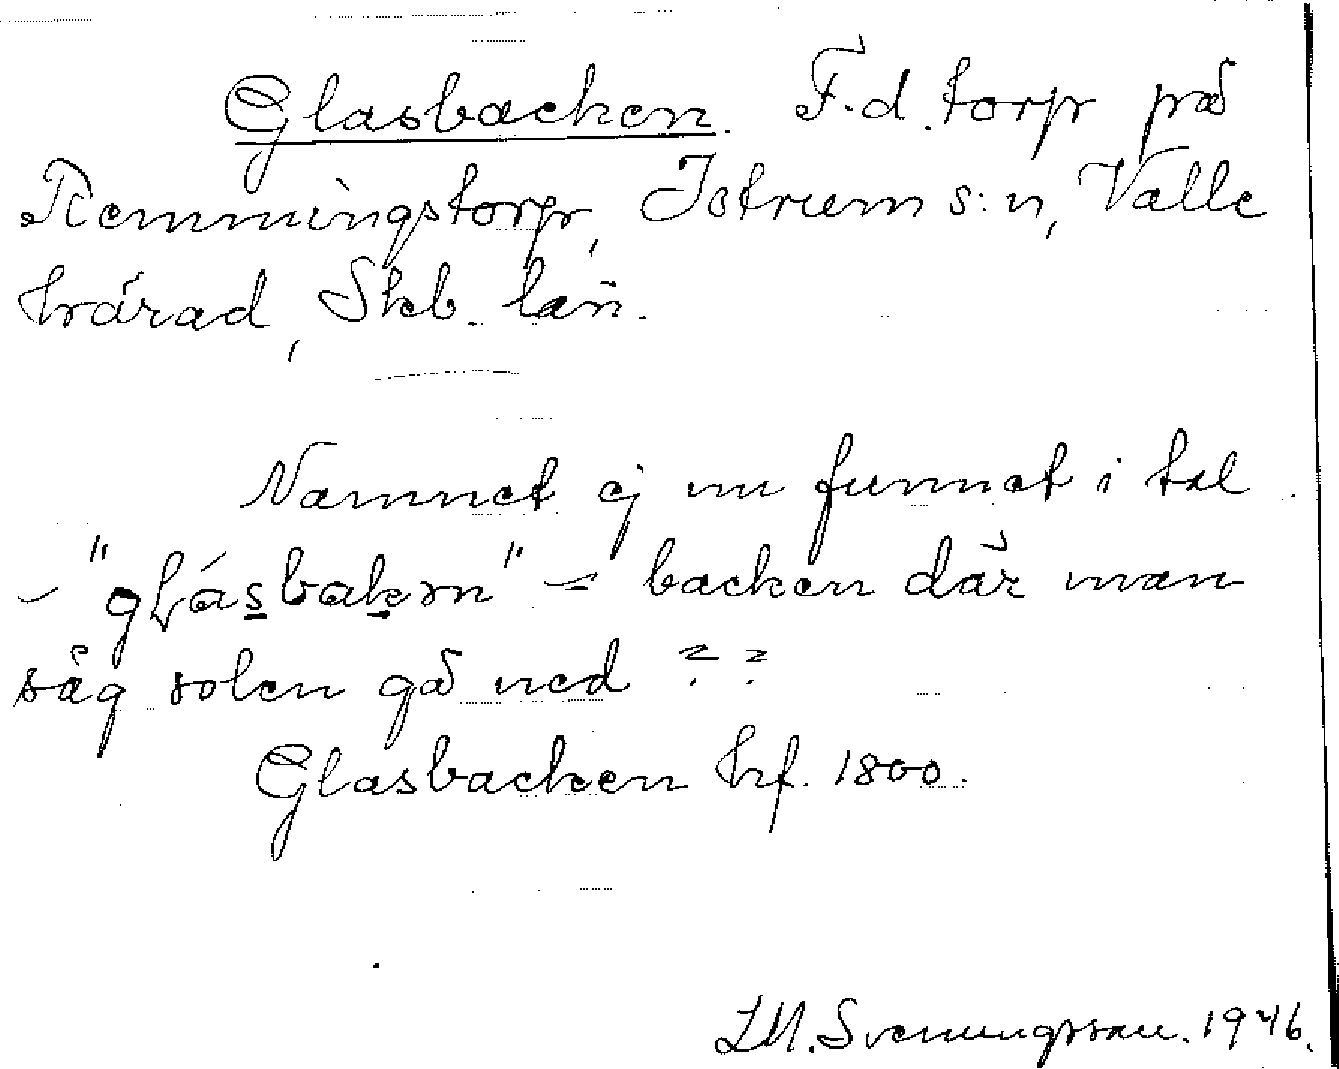 Glasbacken. F.d. torp på
Remmingstorp, Istrum s:n, Valle
härad, Skb. län.
Namnet ej nu funnet i tal.
- "glásbakən" - backen där man
såg solen gå ned ??
Glasbacken hf. 1800.
I.M. Svenungsson. 1946.